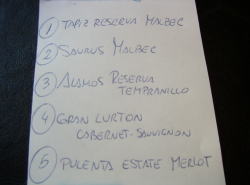 1 TAPIZ RESERVA MALBEC
2 SAURUS MALBEC
3 ALAMOS RESERVA
TEMPRANILLO
4 GRAN LURTON
CABERNET-SAUVIGNON
5 PULENTA ESTATE MERLOT